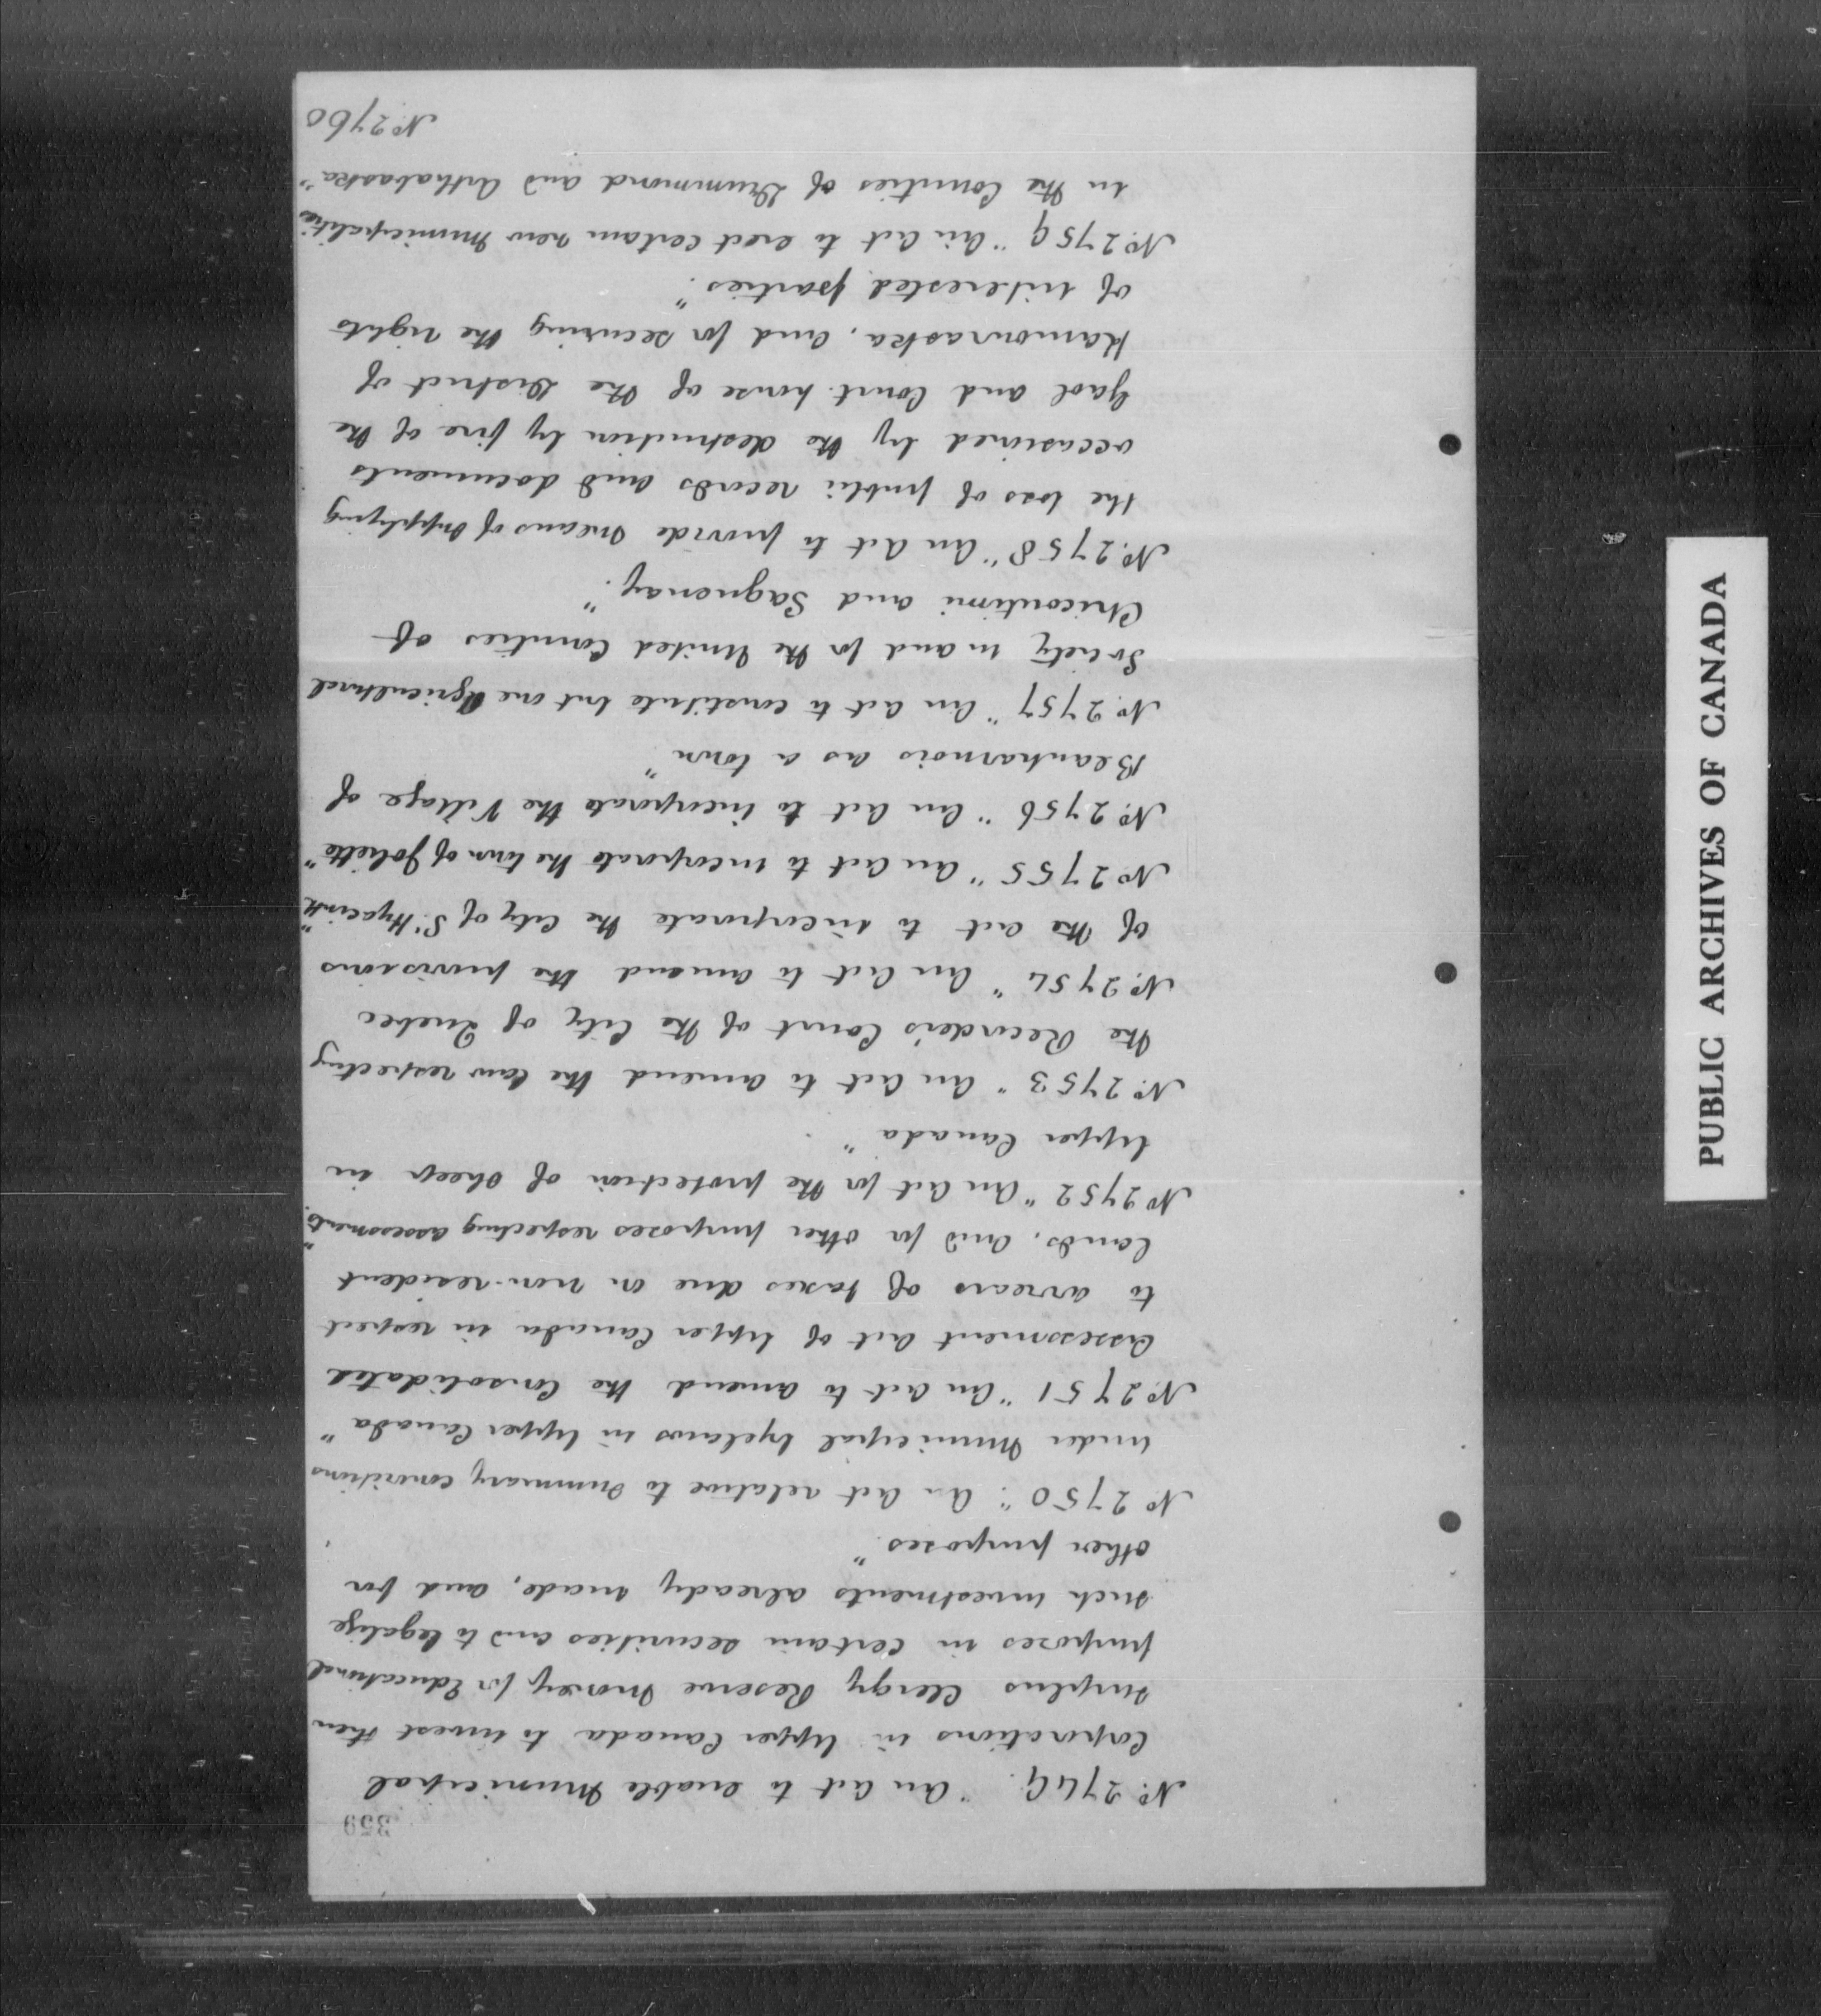 359
No. 2749. "An Act to enable Municipal
Corporations in Upper Canada to invest their
surplus Clergy Reserve Money for Educational
purposes in certain securities and to legalize
such investments already made, and for
other purposes"
No. 2750 "An Act relative to summary convictions
under Municipal byelaws in Upper Canada"
No. 2751 "An Act to amend the Consolidated
Assessment Act of Upper Canada in respect
to arrears of taxes due on non-resident
lands, and for other purposes respecting assessments."
No. 2752 "An Act for the protection of Sheep in
Upper Canada"
No. 2753 "An Act to amend the law respecting
the Recorder's Court of the City of Quebec
No. 2754 "An Act to amend the provisions
of the Act to incorporate the City of St. Hyacinthe"
No. 2755 "An Act to incorporate the town of Joliette"
No. 2756 "An Act to incorporate the Village of
Beauharnois as a town"
No. 2757 "An Act to constitute but one Agricultural
Society in and for the United Counties of
Chicoutimi and Saguenay."
No. 2758 "An Act to provide means of supplying
the loss of public records and documents
occasioned by the destruction by fire of the
Gaol and Court house of the District of
Kamouraska, and for securing the rights
of interested parties."
No. 2759 "An Act to erect certain new Municipalities
in the Counties of Drummond and Arthabaska"
No. 2760
PUBLIC ARCHIVES OF CANADA